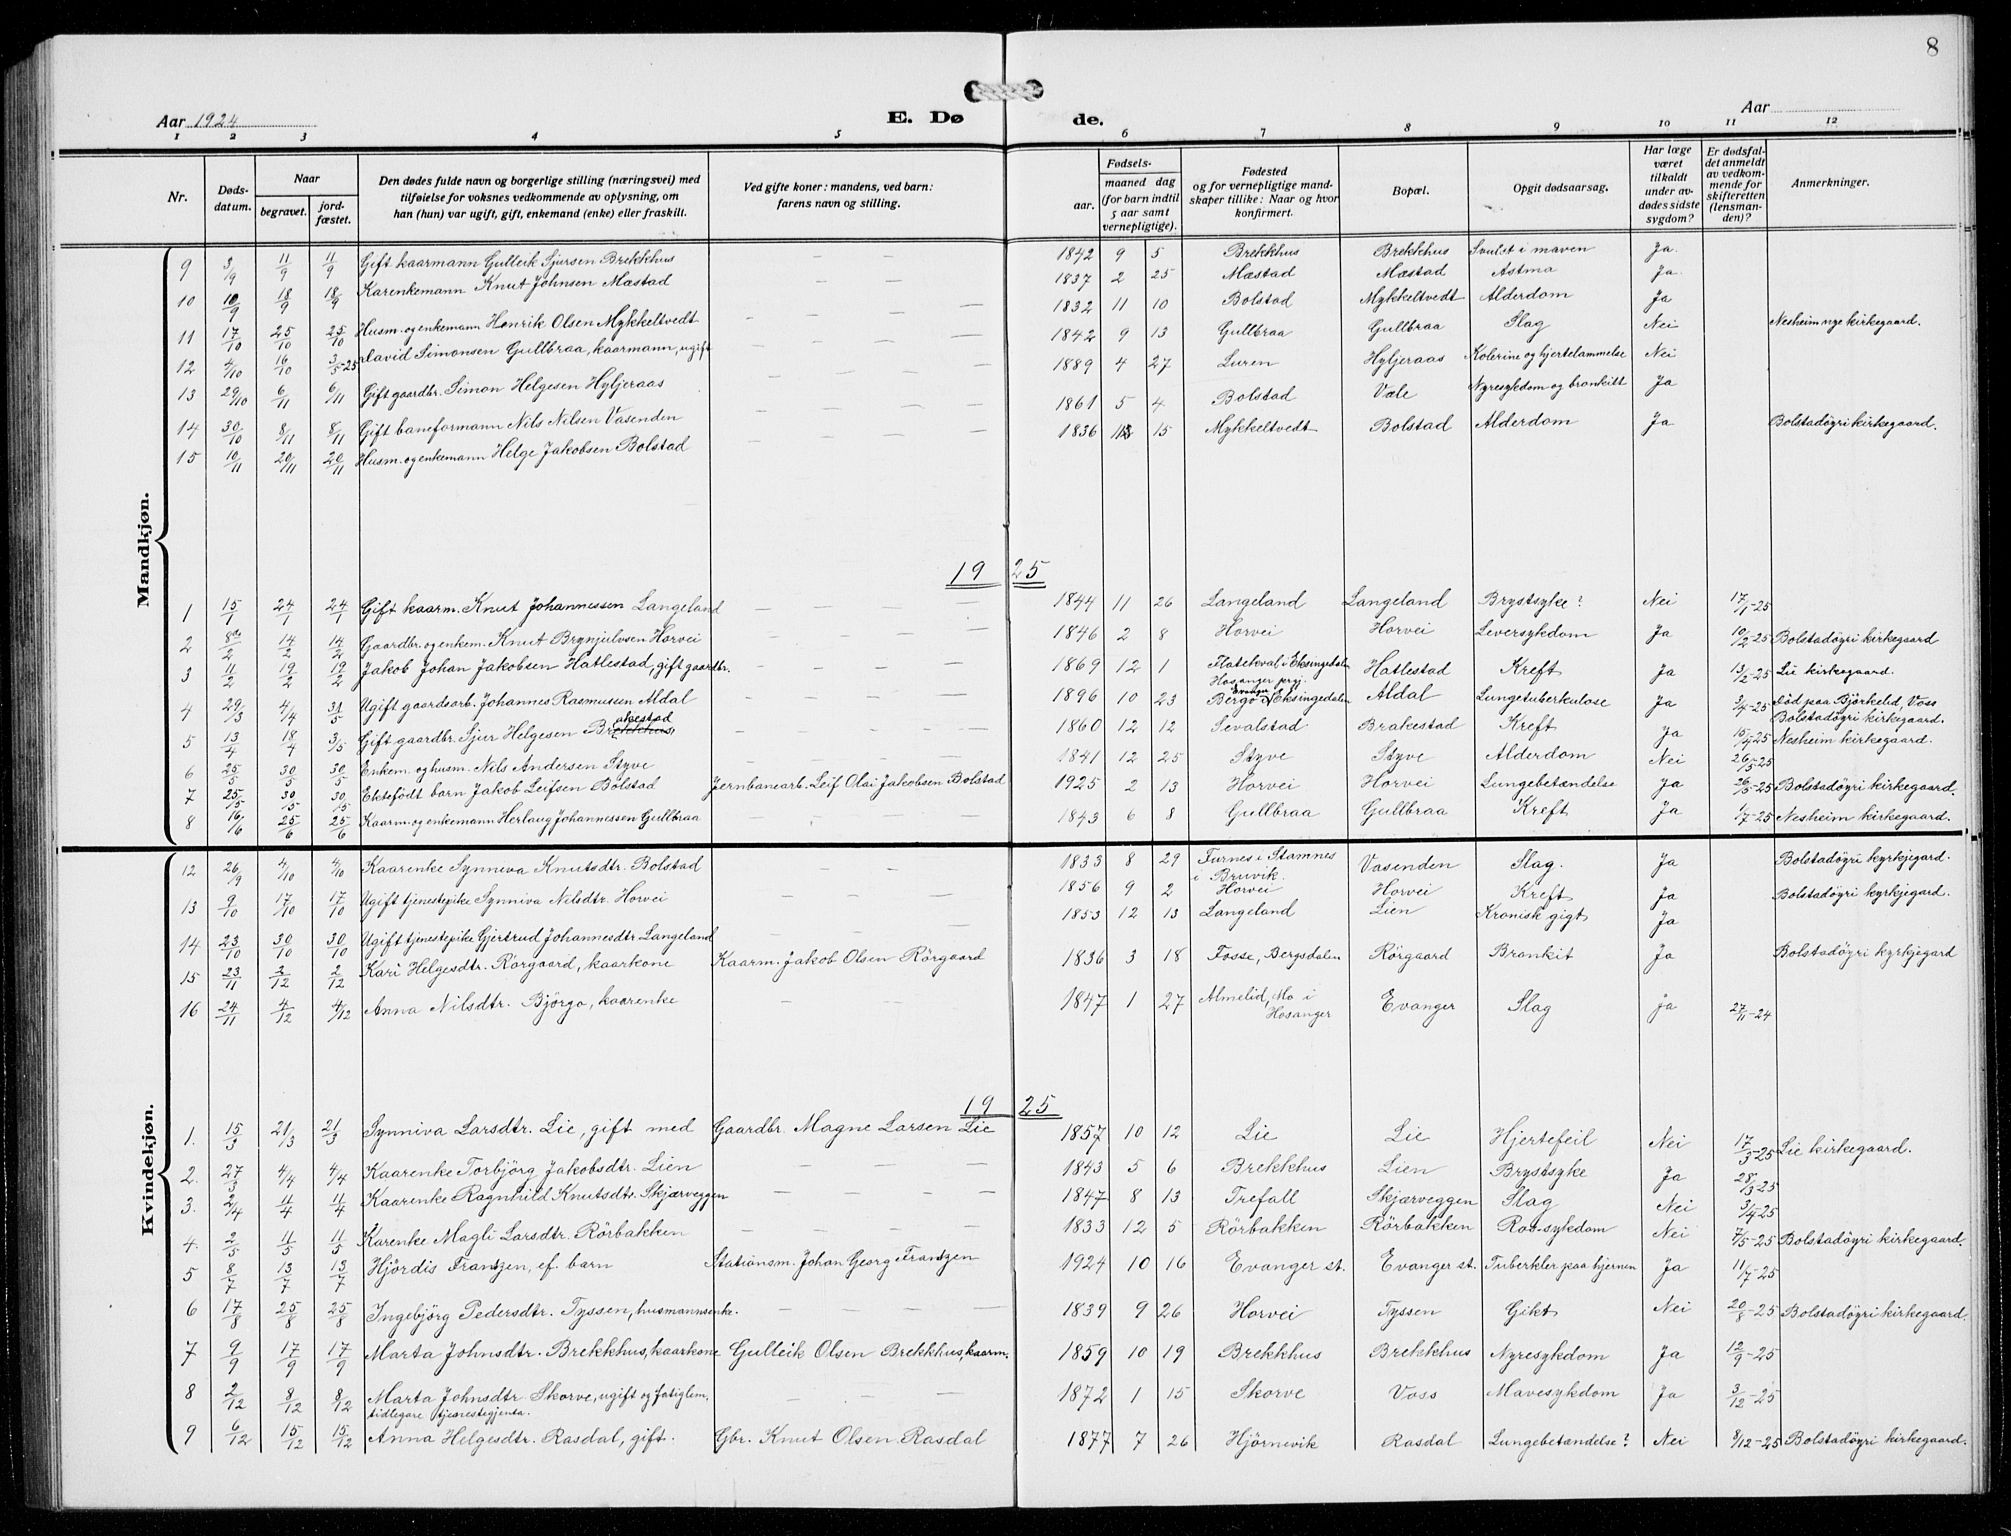 8
Aar 1924 E. Dø de. Aar
1 2 3 4 5 6 7 8 9 10 11 12
Nr. Døds-datum. Naar begravet. jord-fæstet. Den dødes fulde navn og borgerlige stilling (næringsvei) med tilføielse for voksnes vedkommende av oplysning, om han (hun) var ugift, gift, enkemand (enke) eller fraskilt. Ved gifte koner: mandens, ved barn: farens navn og stilling. Fødsels- aar. maaned dag (for barn indtil 5 aar samt vernepligtige). Fødested og for vernepligtige mandskaper tillike: Naar og hvor konfirmert. Bopæl. Opgit dødsaarsag. Har læge været tilkaldt under avdødes sidste sygdom? Er dødsfaldet anmeldt av vedkommende for skifteretten (lensmanden)? Anmerkninger.
Mandkjøn.
9 3/9 11/9 11/9 Gift kaarmann Gulleik Sjursen Brekkhus — — — 1842 9 5 Brekkhus Brekkhus Svulst i maven Ja.
10 10/9 18/9 18/9 Karenkemann Knut Johnsen Mæstad — — — 1837 2 25 Mæstad Mæstad Astma Ja.
11 17/10 25/10 25/10 Husm. og enkemann Henrik Olsen Mykkeltvedt — — — 1832 11 10 Bolstad Mykkeltvedt Alderdom Ja
12 4/10 16/10 3/5-25 David Simonsen Gullbraa, kaarmann, ugift — — — 1842 9 13 Gullbraa Gullbraa Slag Nei Nesheim nye kirkegaard.
13 29/10 6/11 6/11 Gift gaardbr. Simon Helgesen Hyljeraas — — — 1889 4 27 Luren Hyljeraas Kolerine og hjertelammelse Nei
14 30/10 8/11 8/11 Gift baneformann Nils Nilsen Vasenden — — — 1861 5 4 Bolstad Væle Nyresykdom og bronkitt Ja
15 10/11 20/11 20/11 Husm. og enkemann Helge Jakobsen Bolstad — — — 1836 15 Mykkeltvedt Bolstad Alderdom Ja Bolstadøyri kirkegaard.
19 25
1 15/1 24/1 24/1 Gift kaarm. Knut Johannessen Langeland — — — 1844 11 26 Langeland Langeland Brystsyke? Nei 17/1-25
2 8/2 14/2 14/2 Gaardbr. og enkem. Knut Brynjulvsen Horvei — — — 1846 2 8 Horvei Horvei Leversykdom Ja 10/2-25 Bolstadøyri kirkegaard
3 11/2 19/2 19/2 Jakob Johan Jakobsen Hatlestad, gift gaardbr. — — — 1869 12 1 Flatekval i Eksingedalen Hosanger prgj. Hatlestad Kreft Ja 13/2-25 Lie kirkegaard.
4 29/3 4/4 31/5 Ugift gaardsarb. Johannes Rasmussen Aldal — — — 1896 10 23 Bergo i Evanger Eksingedalen Aldal Lungetuberkulose Ja 3/4-25 Død paa Bjørkelid, Voss Bolstadøyri kirkegaard.
5 13/4 18/4 3/5 Gift gaardbr. Sjur Helgesen Brekkhus akestad — — — 1860 12 12 Sevalstad Brakestad Kreft Ja 15/4-25 Nesheim kirkegaard.
6 25/5 30/5 30/5 Enkem. og husm. Nils Andersen Styve — — — 1841 12 25 Styve Styve Alderdom Nei 26/5-25
7 25/5 30/5 30/5 Ektefødt barn Jakob Leifsen Bolstad Jernbanearb. Leif Olai Jakobsen Bolstad 1925 2 13 Horvei Horvei Lungebetændelse Ja 26/5-25 Bolstadøyri kirkegaard.
8 16/6 25/6 25/6 Kaarm. og enkemann Herlaug Johannessen Gullbraa — — — 1843 6 8 Gullbraa Gullbraa Kreft Ja 1/7-25 Nesheim kirkegaard.
Kvindekjøn.
12 26/9 4/10 4/10 Kaarenke Synniva Knutsdtr. Bolstad — — — 1833 8 29 Furnes i Stamnes i Bruvik. Vasenden Slag. Ja Bolstadøyri kyrkjegard.
13 9/10 17/10 17/10 Ugift tjenestepike Synniva Nilsdtr. Horvei — — — 1856 9 2 Horvei Horvei Kreft Ja Bolstadøyri kyrkjegard.
14 23/10 30/10 30/10 Ugift tjenestepike Gjertrud Johannesdtr Langeland — — — 1853 12 13 Langeland Lien Kronisk gigt Ja
15 23/11 2/12 2/12 Kari Helgesdtr. Rørgaard, kaarkone Kaarm. Jakob Olsen Rørgaard 1836 3 18 Fosse, Bergsdalen Rørgaard Bronkit Ja Bolstadøyri kyrkjegard
16 24/11 4/12 4/12 Anna Nilsdtr. Bjørgo, kaarenke — — — 1847 1 27 Almelid, Mo i Hosanger Evanger Slag Ja 27/11-24
19 25
1. 15/3 21/3 21/3 Synniva Larsdtr. Lie, gift med Gaardbr. Magne Larsen Lie 1857 10 12 Lie Lie Hjertefeil Nei 17/3-25 Lie kirkegaard.
2. 27/3 4/4 4/4 Kaarenke Torbjørg Jakobsdtr. Lien — — — 1843 5 6 Brekkhus Lien Brystsyke Ja 28/3-25
3. 2/4 11/4 11/4 Kaarenke Ragnhild Knutsdtr. Skjærveggen — — — 1847 8 13 Trefall Skjærveggen Slag Nei 3/4-25
4. 2/5 11/5 11/5 Karenke Magli Larsdtr. Rörbakken — — — 1833 12 5 Rörbakken Rörbakken Rossykdom Nei 7/5-25 Bolstadöyri kirkegaard.
5 8/7 13/7 13/7 Hjördis Franzen, ef. barn Stationsm. Johan Georg Franzen 1924 10 16 Evanger st. Evanger st. Tuberkler paa hjernen Ja 11/7-25
6 17/8 25/8 25/8 Ingebjörg Pedersdtr. Tyssen, husmannsenke. — — — 1839 9 26 Horvei Tyssen Gikt Nei 20/8-25 Bolstadöyri kirkegaard.
7 9/9 17/9 17/9 Marta Johnsdtr. Brekkhus, kaarkone Gulleik Olsen Brekkhus, kaarm. 1859 10 19 Brekkhus Brekkhus Nyresykdom Ja 12/9-25
8 2/12 8/12 8/12 Marta Johnsdtr. Skorve, ugift og fatiglem. tidlegare tjenestegjenta. — — — 1872 1 15 Skorve Voss Mavesykdom Ja 3/12-25
9 6/12 15/12 15/12 Anna Helgesdtr. Rasdal, gift. Gbr. Knut Olsen Rasdal 1877 7 26 Hjörnevik Rasdal Lungebetændelse? Nei 8/12-25 Bolstadöyri kirkegaard.